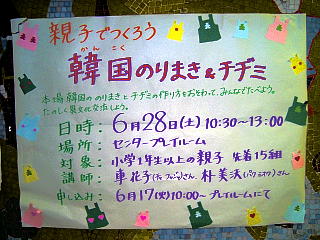 親子でつくろう
かんこく
韓国のりまき&チヂミ
本場韓国ののりまきとチヂミの作り方をおそわって、みんなでたべよう。
たのしく異文化交流しよう。
日時：6月28日(土) 10:30~13:00
場所：センタープレイルーム
対象：小学1年生以上の親子 先着15組
講師：車花子さん 朴美沃さん
申し込み：6月17(火)10:00~プレイルームにて